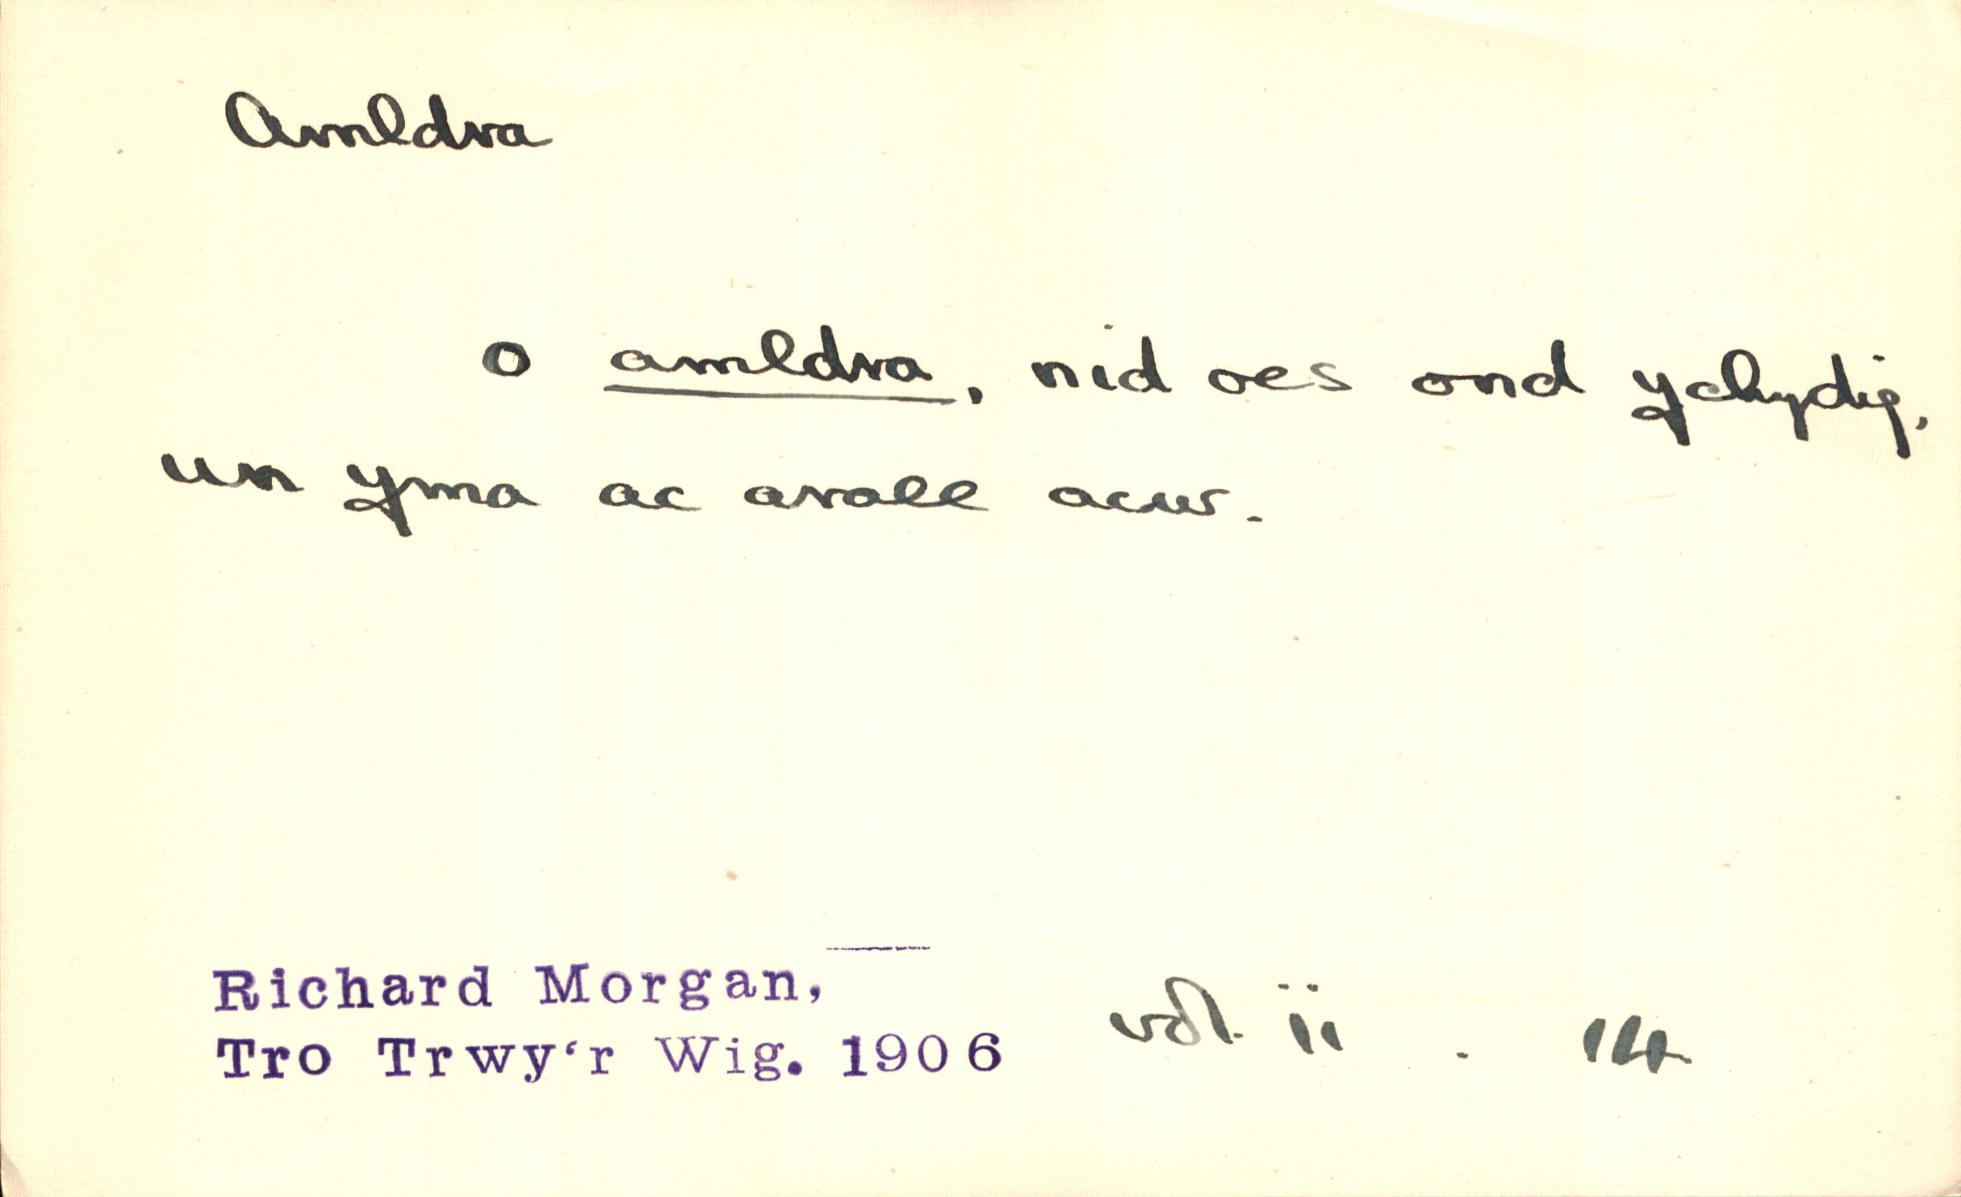 Amldra
o amldra, nid oes ond ychydig,
un yma ac arall acw.
Richard Morgan,
Tro Trwy'r Wig. 1906 vol. ii . 14